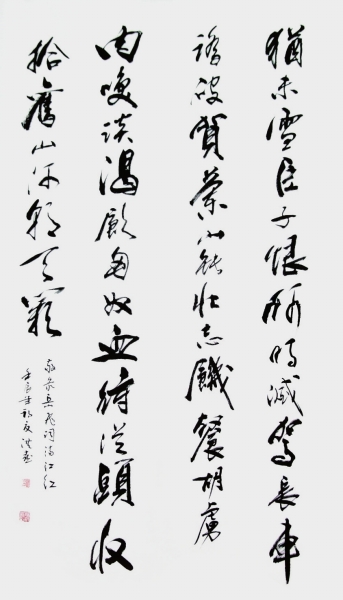 猶未雪臣子恨何時滅駕長車
踏破賀蘭山缺壯志饑餐胡虜
肉笑談渴飲匈奴血待從頭收
拾舊山河朝天闕
岳飛詞滿江紅